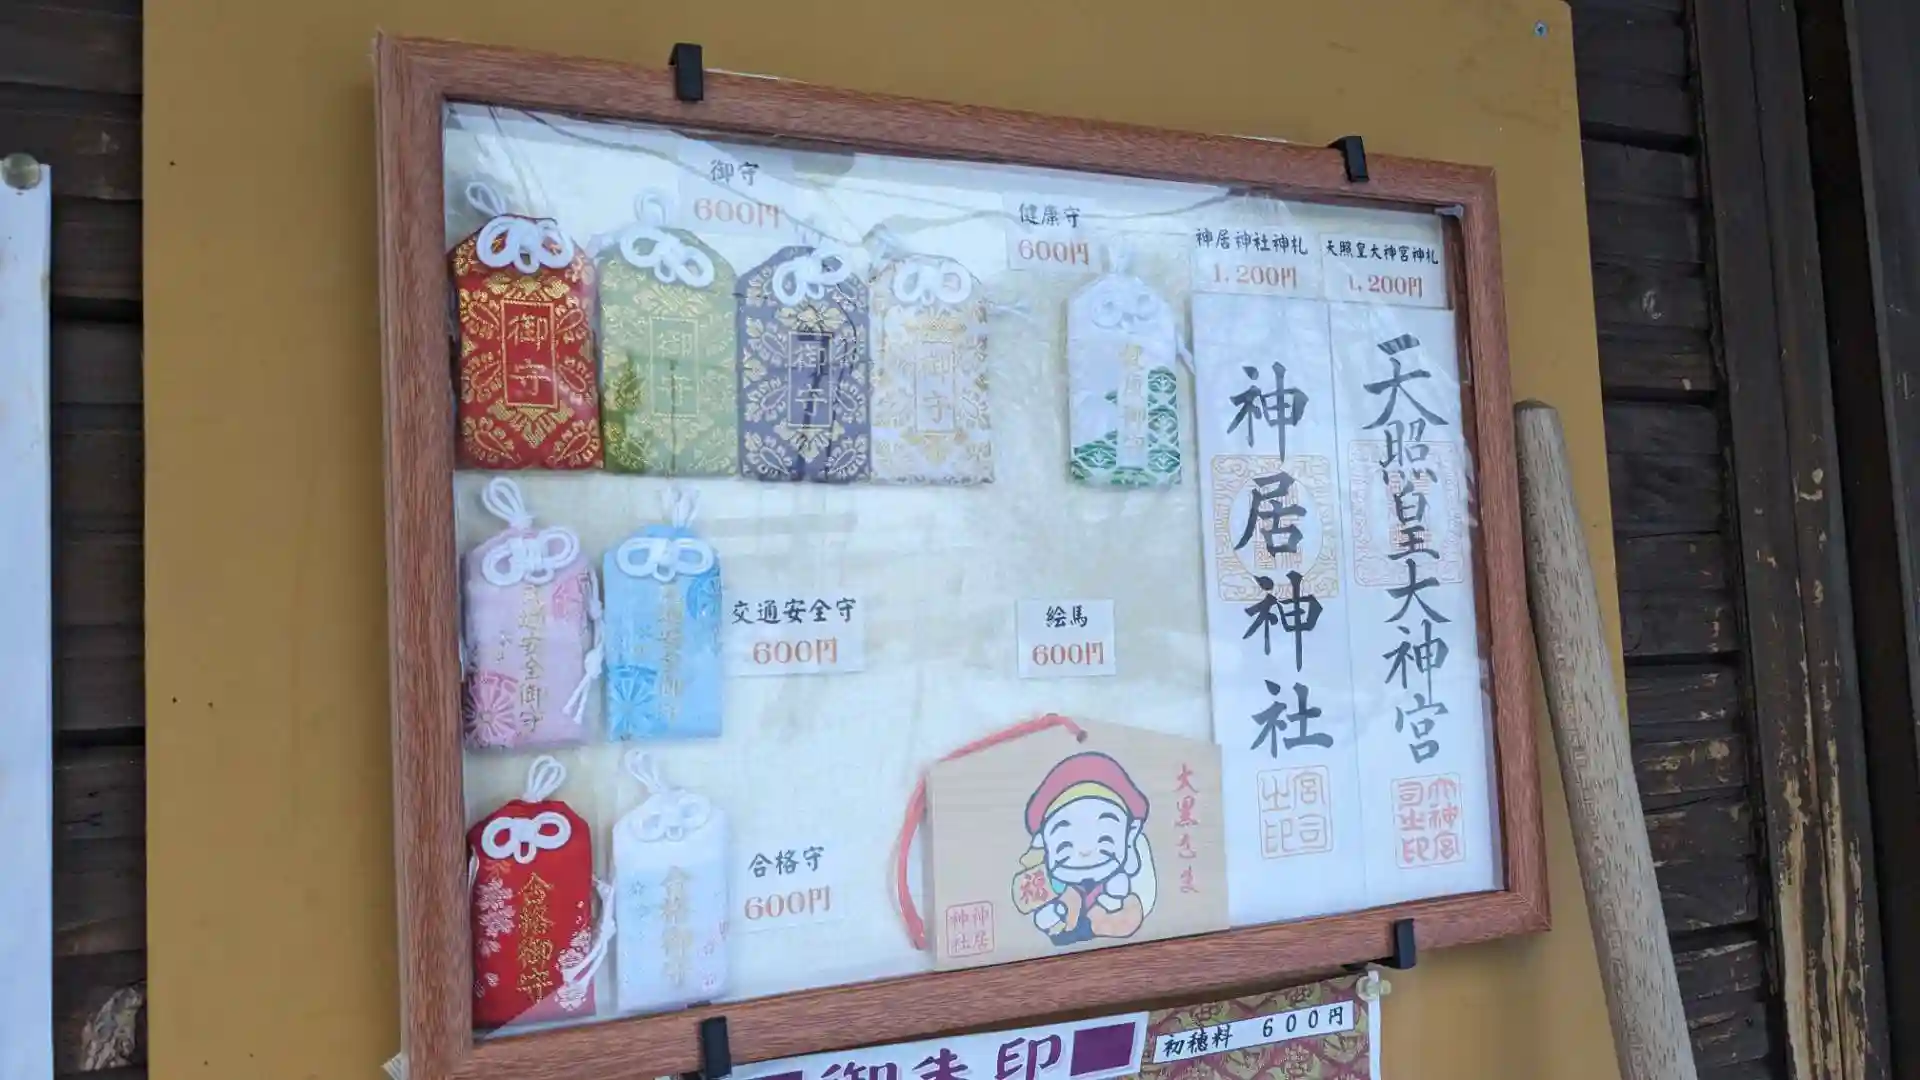 御守
600円
健康守
600円
神居神社神札
1,200円
天照皇大神宮神札
1,200円
御守
御守
御守
御守
健康御守
神居神社
宮司之印
天照皇大神宮
大神宮司之印
交通安全御守
交通安全御守
交通安全守
600円
絵馬
600円
合格御守
合格御守
合格守
600円
大黒さま
福
神居神社
御朱印
初穂料 600円